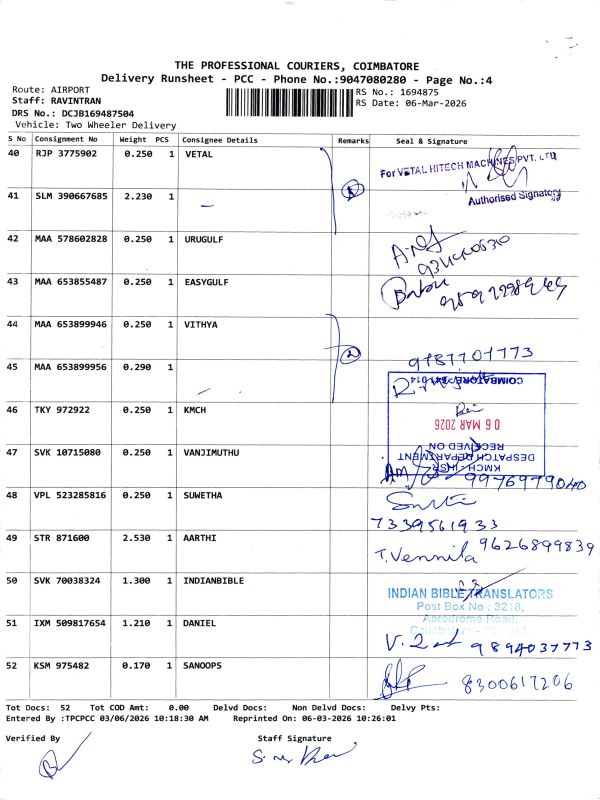 THE PROFESSIONAL COURIERS, COIMBATORE
Delivery Runsheet - PCC - Phone No.:9047080280 - Page No.:4
Route: AIRPORT
Staff: RAVINTRAN
DRS No.: DCJB169487504
Vehicle: Two Wheeler Delivery
RS No.: 1694875
RS Date: 06-Mar-2026
S No Consignment No Weight PCS Consignee Details Remarks Seal & Signature
40 RJP 3775902 0.250 1 VETAL
For VETAL HITECH MACHINES PVT. LTD
Authorised Signatory
41 SLM 390667685 2.230 1
42 MAA 578602828 0.250 1 URUGULF
43 MAA 653855487 0.250 1 EASYGULF
44 MAA 653899946 0.250 1 VITHYA
2
9787701773
45 MAA 653899956 0.290 1
46 TKY 972922 0.250 1 KMCH
COIMBATORE - 641 014
06 MAR 2026
RECEIVED ON
DESPATCH DEPARTMENT
KMCH - IHSR
47 SVK 10715080 0.250 1 VANJIMUTHU
9976979040
48 VPL 523285816 0.250 1 SUWETHA
7339561933
49 STR 871600 2.530 1 AARTHI
T. Vennila 9626899839
50 SVK 70038324 1.300 1 INDIANBIBLE
INDIAN BIBLE TRANSLATORS
Post Box No : 3218,
Aerodrome Road,
51 IXM 509817654 1.210 1 DANIEL
9894037773
52 KSM 975482 0.170 1 SANOOPS
8300617206
Tot Docs: 52 Tot COD Amt: 0.00 Delvd Docs: Non Delvd Docs: Delvy Pts:
Entered By :TPCPCC 03/06/2026 10:18:30 AM Reprinted On: 06-03-2026 10:26:01
Verified By Staff Signature